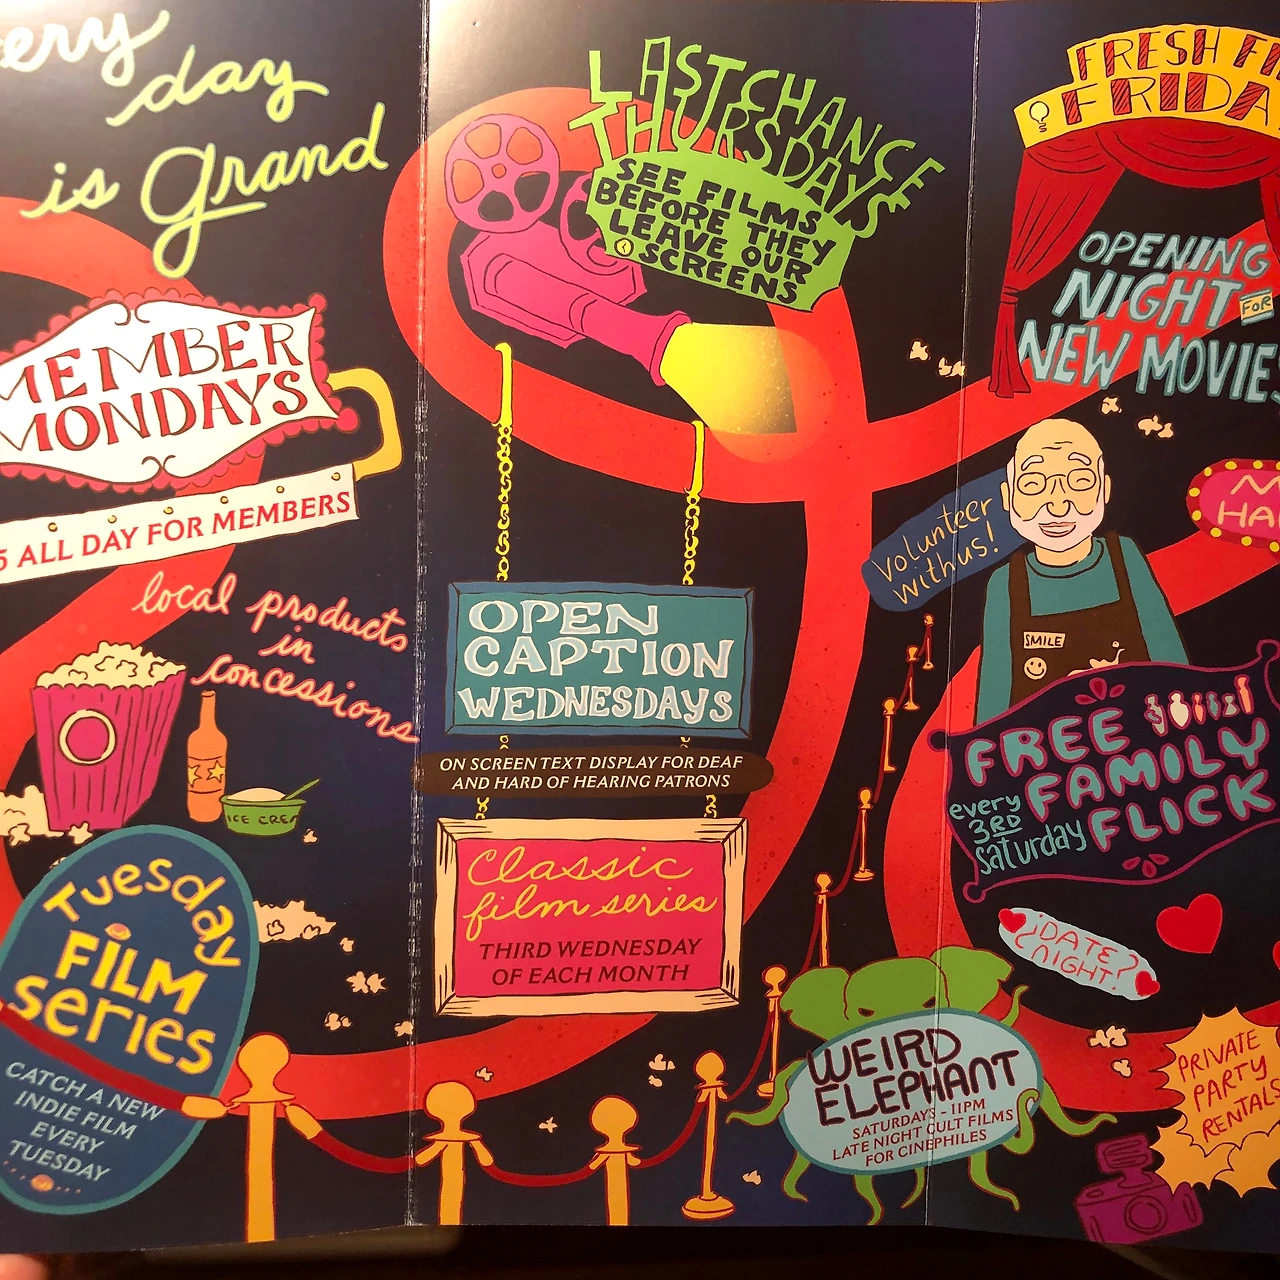 day
is grand
MEMBER
MONDAYS
5 ALL DAY FOR MEMBERS
local products
in
concessions
ICE CREA
Tuesday
FILM
series
CATCH A NEW
INDIE FILM
EVERY
TUESDAY
LAST CHANCE
THURSDAYS
SEE FILMS
BEFORE THEY
LEAVE OUR
SCREENS
OPEN
CAPTION
WEDNESDAYS
ON SCREEN TEXT DISPLAY FOR DEAF
AND HARD OF HEARING PATRONS
Classic
film series
THIRD WEDNESDAY
OF EACH MONTH
FRESH FI
FRIDA
OPENING
NIGHT FOR
NEW MOVIES
volunteer
with us!
M
HA
SMILE
FREE
FAMILY
FLICK
every
3RD
saturday
¿DATE?
¿NIGHT!
WEIRD
ELEPHANT
SATURDAYS - 11PM
LATE NIGHT CULT FILMS
FOR CINEPHILES
PRIVATE
PARTY
RENTALS